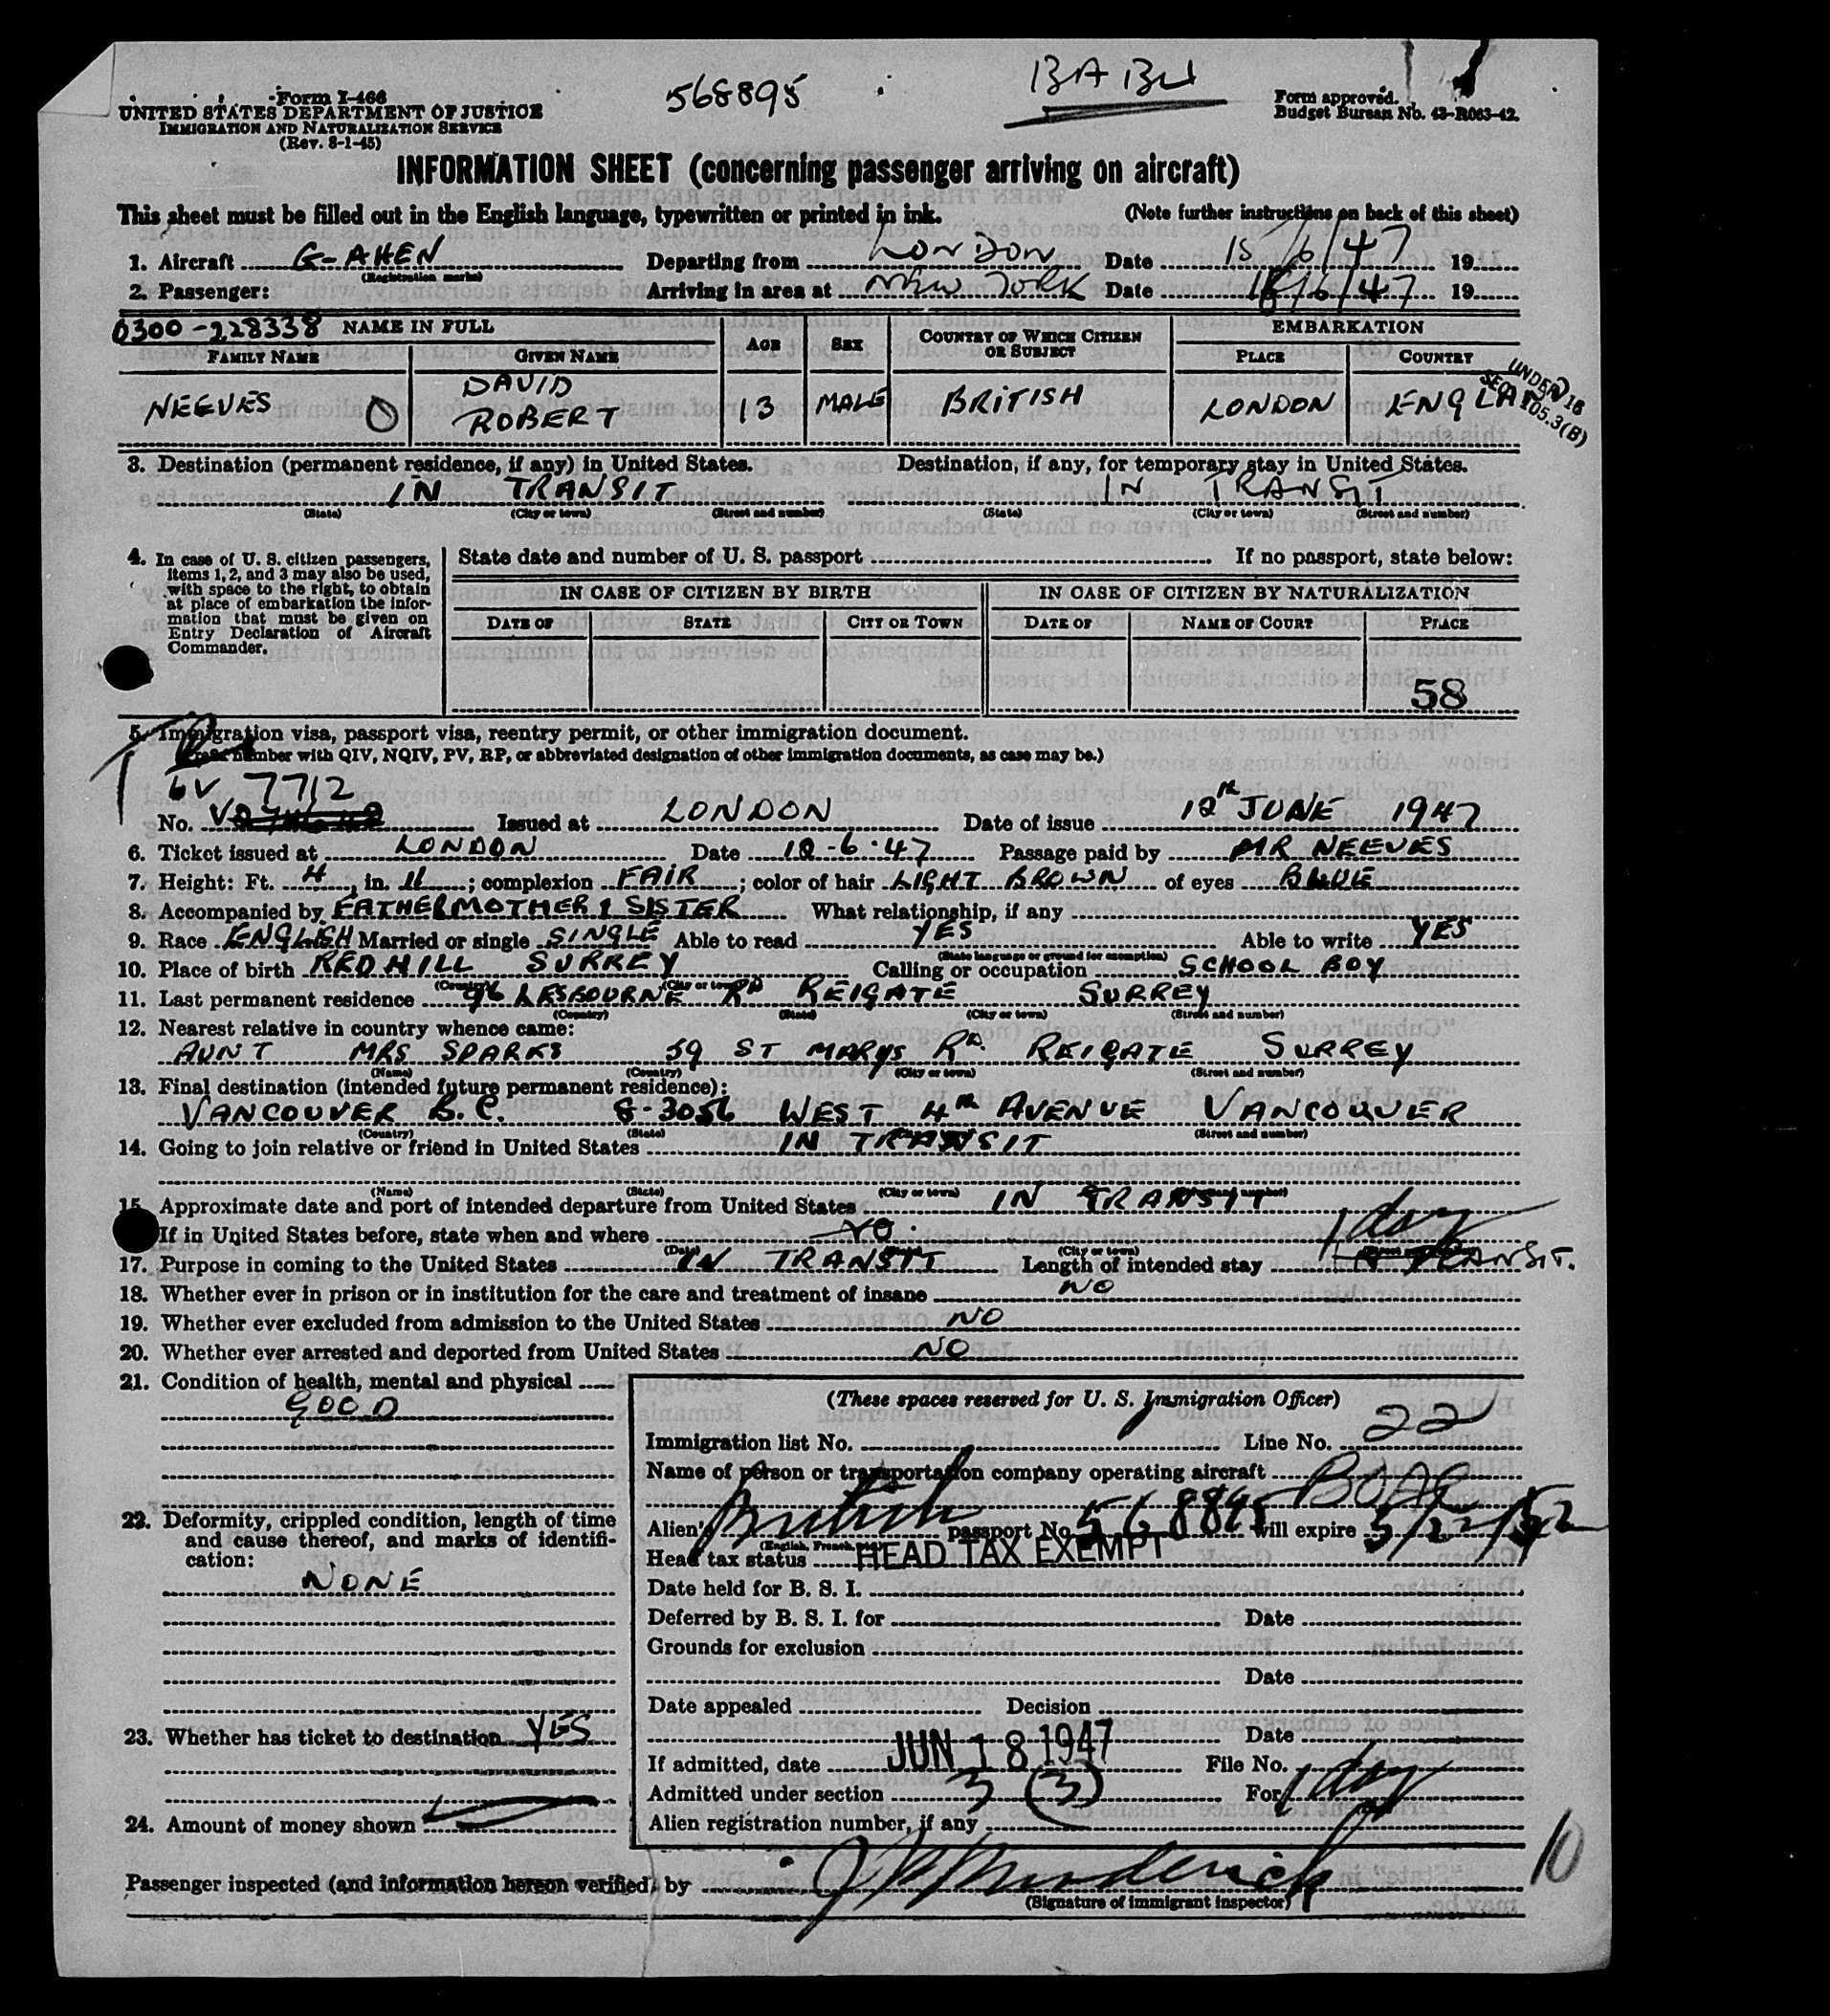 568895
BABU
Form I-466
UNITED STATES DEPARTMENT OF JUSTICE
IMMIGRATION AND NATURALIZATION SERVICE
(Rev. 8-1-45)
Form approved.
Budget Bureau No. 43-R063-42.
INFORMATION SHEET (concerning passenger arriving on aircraft)
This sheet must be filled out in the English language, typewritten or printed in ink. (Note further instructions on back of this sheet)
1. Aircraft G-AHEN Departing from LONDON Date 15/6/47 19
(Registration marks)
2. Passenger: Arriving in area at NEW YORK Date 18/6/47 19
0300-228338 NAME IN FULL
FAMILY NAME GIVEN NAME AGE SEX COUNTRY OF WHICH CITIZEN OR SUBJECT EMBARKATION
PLACE COUNTRY
NEEVES DAVID ROBERT 13 MALE BRITISH LONDON ENGLAND
UNDER 16
SEC. 105.3(B)
3. Destination (permanent residence, if any) in United States. Destination, if any, for temporary stay in United States.
IN TRANSIT IN TRANSIT
(State) (City or town) (Street and number) (State) (City or town) (Street and number)
4. In case of U. S. citizen passengers,
items 1, 2, and 3 may also be used,
with space to the right, to obtain
at place of embarkation the infor-
mation that must be given on
Entry Declaration of Aircraft
Commander.
State date and number of U. S. passport If no passport, state below:
IN CASE OF CITIZEN BY BIRTH IN CASE OF CITIZEN BY NATURALIZATION
DATE OF STATE CITY OR TOWN DATE OF NAME OF COURT PLACE
58
5. Immigration visa, passport visa, reentry permit, or other immigration document.
number with QIV, NQIV, PV, RP, or abbreviated designation of other immigration documents, as case may be.)
7712
No. Issued at LONDON Date of issue 12th JUNE 1947
6. Ticket issued at LONDON Date 12-6-47 Passage paid by MR NEEVES
7. Height: Ft. 4, in. 11; complexion FAIR; color of hair LIGHT BROWN of eyes BLUE
8. Accompanied by FATHER MOTHER & SISTER What relationship, if any
9. Race ENGLISH Married or single SINGLE Able to read YES Able to write YES
(State language or ground for exemption)
10. Place of birth REDHILL SURREY Calling or occupation SCHOOL BOY
(Country) (City or town)
11. Last permanent residence 96 LESBOURNE RD REIGATE SURREY
(Country) (State) (City or town) (Street and number)
12. Nearest relative in country whence came:
AUNT MRS SPARKS 59 ST MARYS RD. REIGATE SURREY
(Name) (Country) (City or town) (Street and number)
13. Final destination (intended future permanent residence):
VANCOUVER B.C. 8-3056 WEST 4TH AVENUE VANCOUVER
(Country) (State) (Street and number)
14. Going to join relative or friend in United States IN TRANSIT
(Name) (State) (City or town) (Street and number)
15. Approximate date and port of intended departure from United States IN TRANSIT
If in United States before, state when and where NO. 1 day
(Date) (City or town)
17. Purpose in coming to the United States IN TRANSIT Length of intended stay IN TRANSIT.
18. Whether ever in prison or in institution for the care and treatment of insane NO
19. Whether ever excluded from admission to the United States NO
20. Whether ever arrested and deported from United States NO
21. Condition of health, mental and physical
GOOD
22. Deformity, crippled condition, length of time
and cause thereof, and marks of identifi-
cation:
NONE
23. Whether has ticket to destination YES
24. Amount of money shown
(These spaces reserved for U. S. Immigration Officer)
Immigration list No. Line No. 22
Name of person or transportation company operating aircraft
BOAC
Alien's British passport No. 568895 will expire 5/22/52
(English, French, etc.)
Head tax status HEAD TAX EXEMPT
Date held for B. S. I.
Deferred by B. S. I. for Date
Grounds for exclusion
Date
Date appealed Decision
Date
If admitted, date JUN 18 1947 File No.
Admitted under section 3 (3) For 1 day
Alien registration number, if any
10
Passenger inspected (and information hereon verified) by
(Signature of immigrant inspector)